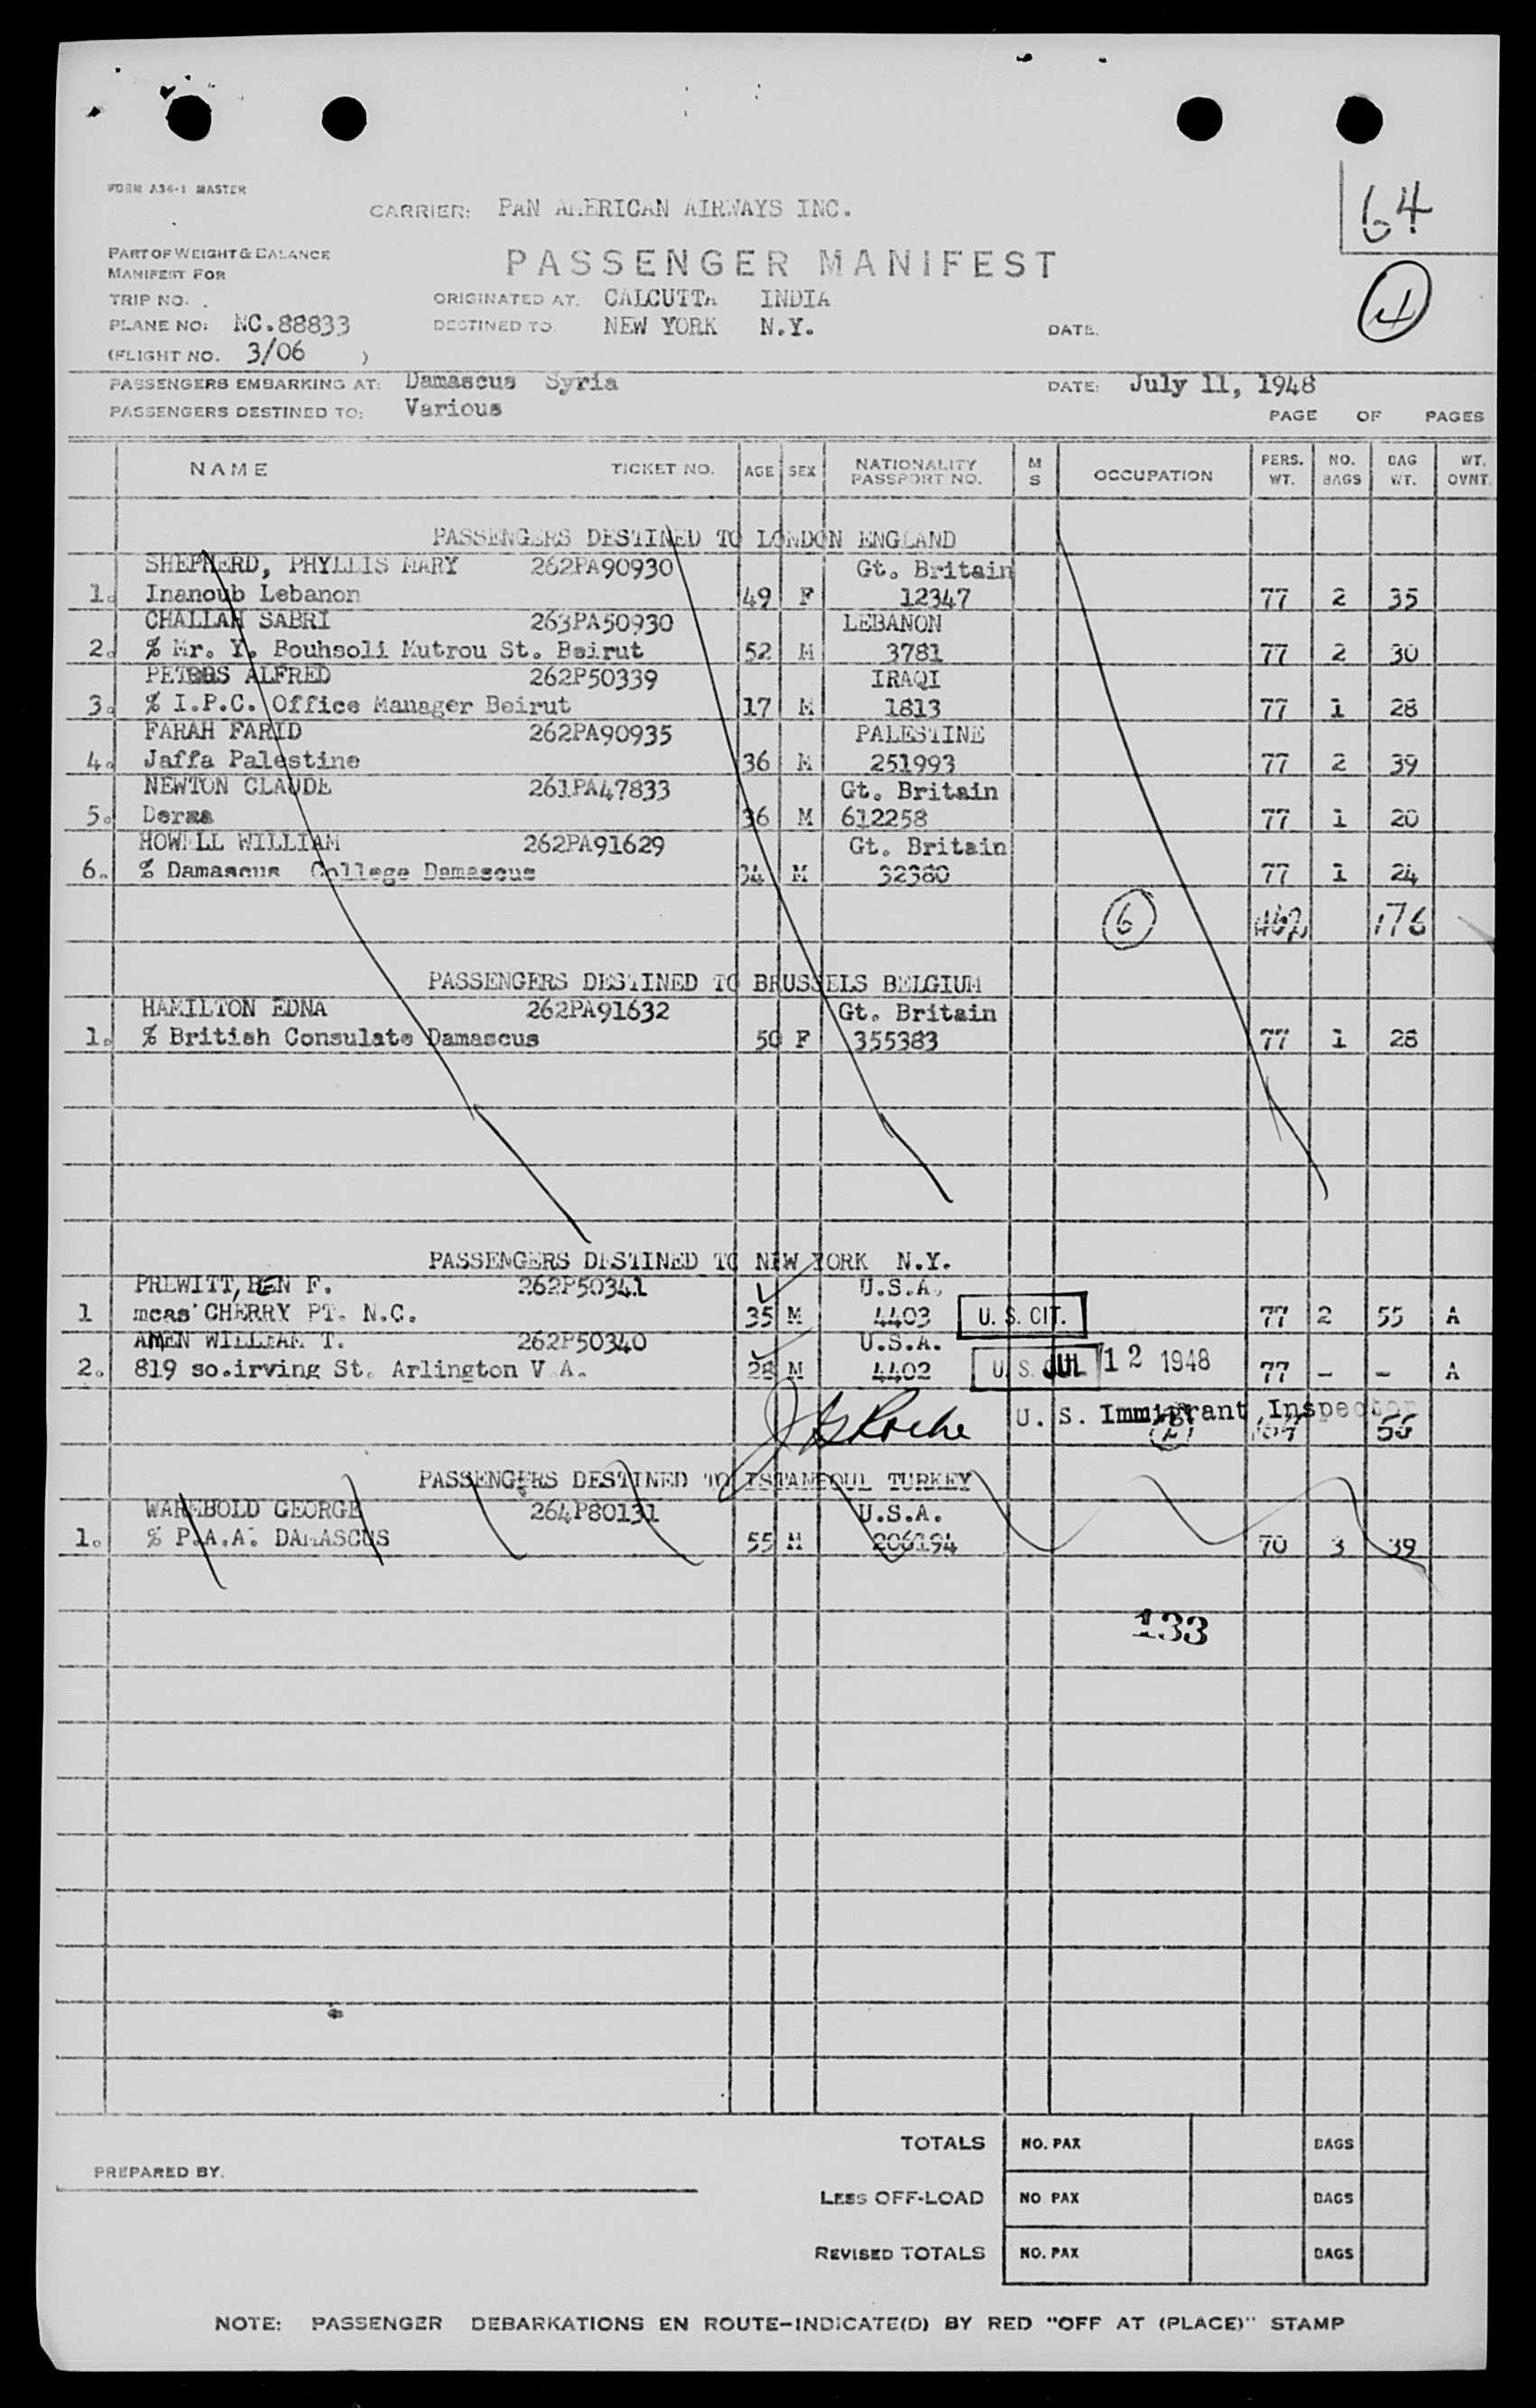 FORM A36-1 MASTER
64
CARRIER: PAN AMERICAN AIRWAYS INC.
PART OF WEIGHT & BALANCE
MANIFEST FOR
PASSENGER MANIFEST
TRIP NO. ORIGINATED AT: CALCUTTA INDIA
PLANE NO: NC.88833 DESTINED TO: NEW YORK N.Y. DATE:
(FLIGHT NO. 3/06 )
PASSENGERS EMBARKING AT: Damascus Syria DATE: July 11, 1948
PASSENGERS DESTINED TO: Various PAGE OF PAGES
NAME TICKET NO. AGE SEX NATIONALITY PASSPORT NO. M S OCCUPATION PERS. WT. NO. BAGS BAG WT. WT. OVNT.
PASSENGERS DESTINED TO LONDON ENGLAND
SHEPHERD, PHYLLIS MARY 262PA90930 Gt. Britain
1. Inanoub Lebanon 49 F 12347 77 2 35
CHALLAH SABRI 263PA50930 LEBANON
2. % Mr. Y. Bouhsoli Mutrou St. Beirut 52 M 3781 77 2 30
ALFRED 262P50339 IRAQI
3. % I.P.C. Office Manager Beirut 17 M 1813 77 1 28
FARAH FARID 262PA90935 PALESTINE
4. Jaffa Palestine 36 M 251993 77 2 39
NEWTON CLAUDE 261PA47833 Gt. Britain
5. Deraa 36 M 612258 77 1 20
HOWELL WILLIAM 262PA91629 Gt. Britain
6. % Damascus College Damascus 34 M 32380 77 1 24
6 462 176
PASSENGERS DESTINED TO BRUSSELS BELGIUM
HAMILTON EDNA 262PA91632 Gt. Britain
1. % British Consulate Damascus 50 F 355383 77 1 28
PASSENGERS DESTINED TO NEW YORK N.Y.
PREWITT, BEN F. 262P50341 U.S.A.
1 mcas CHERRY PT. N.C. 35 M 4403 U. S. CIT. 77 2 55 A
AMEN WILLIAM T. 262P50340 U.S.A.
2. 819 so.irving St. Arlington V.A. 28 M 4402 U. S. JUL 12 1948 77 - - A
J G Roche U. S. Immigrant Inspector
2 154 55
PASSENGERS DESTINED TO ISTANBOUL TURKEY
WAREBOLD GEORGE 264P80131 U.S.A.
1. % P.A.A. DAMASCUS 55 M 206194 70 3 39
133
TOTALS NO. PAX BAGS
PREPARED BY.
LESS OFF-LOAD NO PAX BAGS
REVISED TOTALS NO. PAX BAGS
NOTE: PASSENGER DEBARKATIONS EN ROUTE-INDICATE(D) BY RED "OFF AT (PLACE)" STAMP